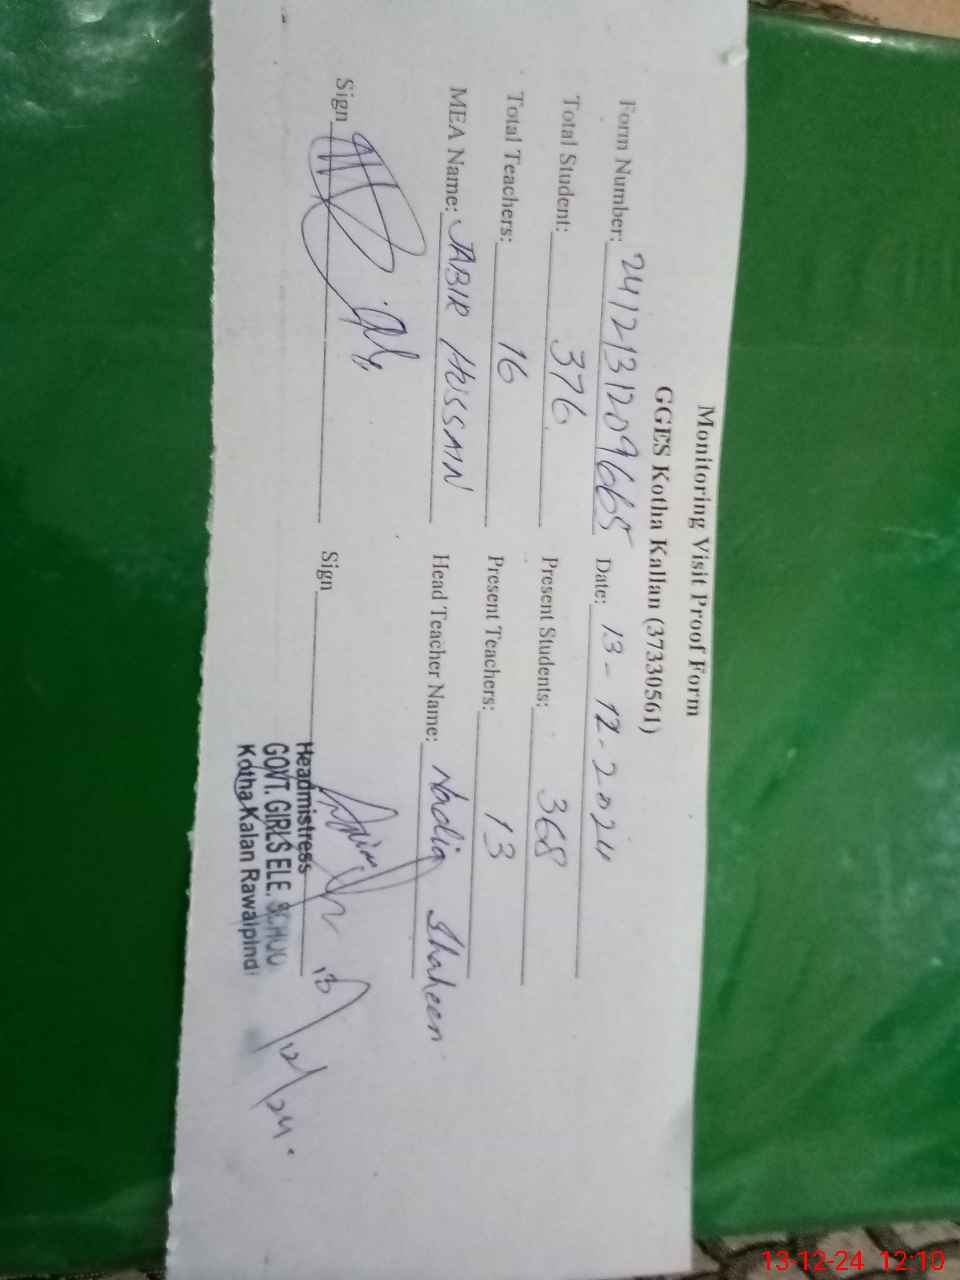 Monitoring Visit Proof Form
GGES Kotha Kallan (37330561)
Form Number: 2412131209665 Date: 13-12-2024
Total Student: 376 Present Students: 368
Total Teachers: 16 Present Teachers: 13
MEA Name: JABIR HUSSAIN Head Teacher Name: Nadia Shaheen
Sign Sign
13/12/24.
Headmistress
GOVT. GIRLS ELE. SCHOO
Kotha Kalan Rawalpindi
13-12-24 12:10